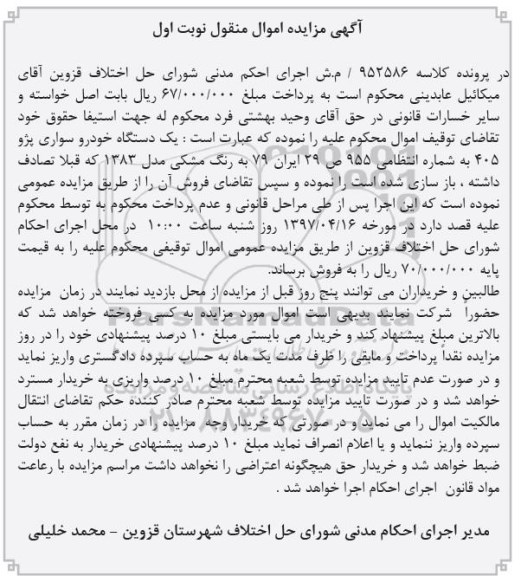 آگهی مزایده اموال منقول نوبت اول
در پرونده کلاسه ۹۵۲۵۸۶ / م.ش اجرای احکم مدنی شورای حل اختلاف قزوین آقای
میکائیل عابدینی محکوم است به پرداخت مبلغ ۶۷/۰۰۰/۰۰۰ ریال بابت اصل خواسته و
سایر خسارات قانونی در حق آقای وحید بهشتی فرد محکوم له جهت استیفا حقوق خود
تقاضای توقیف اموال محکوم علیه را نموده که عبارت است : یک دستگاه خودرو سواری پژو
۴۰۵ به شماره انتظامی ۹۵۵ ص ۲۹ ایران ۷۹ به رنگ مشکی مدل ۱۳۸۳ که قبلا تصادف
داشته ، باز سازی شده است را نموده و سپس تقاضای فروش آن را از طریق مزایده عمومی
نموده است که این اجرا پس از طی مراحل قانونی و عدم پرداخت محکوم به توسط محکوم
علیه قصد دارد در مورخه ۱۳۹۷/۰۴/۱۶ روز شنبه ساعت ۱۰:۰۰ در محل اجرای احکام
شورای حل اختلاف قزوین از طریق مزایده عمومی اموال توقیفی محکوم علیه را به قیمت
پایه ۷۰/۰۰۰/۰۰۰ ریال را به فروش برساند.
طالبین و خریداران می توانند پنج روز قبل از مزایده از محل بازدید نمایند در زمان مزایده
حضوراً شرکت نمایند بدیهی است اموال مورد مزایده به کسی فروخته خواهد شد که
بالاترین مبلغ پیشنهاد کند و خریدار می بایستی مبلغ ۱۰ درصد پیشنهادی خود را در روز
مزایده نقداً پرداخت و مابقی را ظرف مدت یک ماه به حساب سپرده دادگستری واریز نماید
و در صورت عدم تایید مزایده توسط شعبه محترم مبلغ ۱۰ درصد واریزی به خریدار مسترد
خواهد شد و در صورت تایید مزایده توسط شعبه محترم صادر کننده حکم تقاضای انتقال
مالکیت اموال را می نماید و در صورتی که خریدار وجه مزایده را در زمان مقرر به حساب
سپرده واریز ننماید و یا اعلام انصراف نماید مبلغ ۱۰ درصد پیشنهادی خریدار به نفع دولت
ضبط خواهد شد و خریدار حق هیچگونه اعتراضی را نخواهد داشت مراسم مزایده با رعاعت
مواد قانون اجرای احکام اجرا خواهد شد .
مدیر اجرای احکام مدنی شورای حل اختلاف شهرستان قزوین - محمد خلیلی